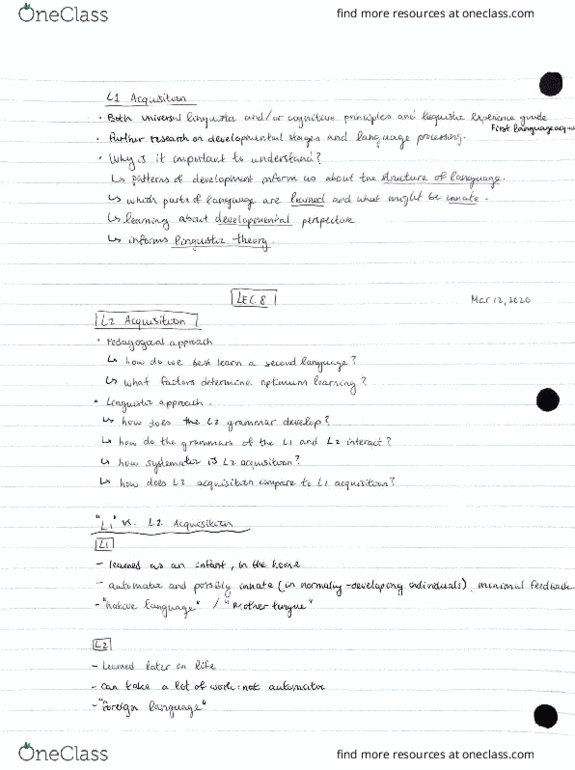 OneClass
find more resources at oneclass.com
L1 Acquisition
• Both universal linguistic and/or cognitive principles and linguistic experience guide
First language acquis
• Further research on developmental stages and language processing.
• Why is it important to understand?
↳ patterns of development inform us about the structure of language.
↳ which parts of language are learned and what might be innate.
↳ learning about developmental perspective
↳ informs linguistic theory.
LEC. 8
Mar 12, 2020
L2 Acquisition
• Pedagogical approach
↳ how do we best learn a second language?
↳ what factors determine optimum learning?
• Linguistic approach.
↳ how does the L2 grammar develop?
↳ how do the grammars of the L1 and L2 interact?
↳ how systematic is L2 acquisition?
↳ how does L2 acquisition compare to L1 acquisition?
"L1" vs. L2 Acquisition
L1
- learned as an infant, in the home
- automatic and possibly innate (in normally-developing individuals), minimal feedback
- "native language" / "mother tongue"
L2
- Learned later in life
- can take a lot of work: not automatic
- "foreign language"
OneClass
find more resources at oneclass.com